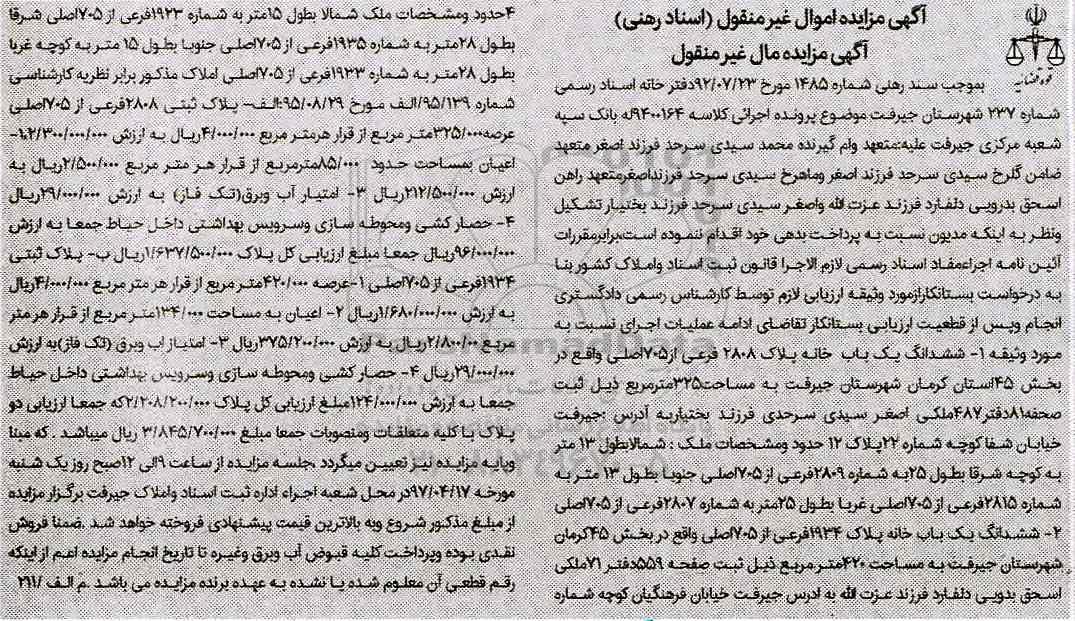 آگهی مزایده اموال غیر منقول (اسناد رهنی)
آگهی مزایده مال غیر منقول
قوه قضاییه
بموجب سند رهنی شماره ۱۴۸۵ مورخ ۹۲/۰۷/۲۳دفتر خانه اسناد رسمی
شماره ۲۳۷ شهرستان جیرفت موضوع پرونده اجرائی کلاسه ۹۴۰۰۱۶۴له بانک سپه
شعبه مرکزی جیرفت علیه:متعهد وام گیرنده محمد سیدی سرحد فرزند اصغر متعهد
ضامن گلرخ سیدی سرحد فرزند اصغر وماهرخ سیدی سرحد فرزنداصغرمتعهد راهن
اسحق بدرویی دلفارد فرزند عزت الله واصغر سیدی سرحد فرزند بختیار تشکیل
ونظر به اینکه مدیون نسبت به پرداخت بدهی خود اقدام ننموده است،برابرمقررات
آئین نامه اجراءمفاد اسناد رسمی لازم الاجرا قانون ثبت اسناد واملاک کشور بنا
به درخواست بستانکارازمورد وثیقه ارزیابی لازم توسط کارشناس رسمی دادگستری
انجام وپس از قطعیت ارزیابی بستانکار تقاضای ادامه عملیات اجرای نسبت به
مورد وثیقه ۱- ششدانگ یک باب خانه پلاک ۲۸۰۸ فرعی از۷۰۵اصلی واقع در
بخش ۴۵استان کرمان شهرستان جیرفت به مساحت۳۲۵مترمربع ذیل ثبت
صفحه۸۱دفتر۴۸۷ملکی اصغر سیدی سرحدی فرزند بختیاربه آدرس :جیرفت
خیابان شفا کوچه شماره ۲۲پلاک ۱۲ حدود ومشخصات ملک : شمالابطول ۱۳ متر
به کوچه شرقا بطول ۲۵به شماره ۲۸۰۹فرعی از ۷۰۵اصلی جنوبا بطول ۱۳ متر به
شماره ۲۸۱۵فرعی از ۷۰۵اصلی غربا بطول ۲۵متر به شماره ۲۸۰۷فرعی از ۷۰۵اصلی
۲- ششدانگ یک باب خانه پلاک ۱۹۳۴فرعی از ۷۰۵اصلی واقع در بخش ۴۵کرمان
شهرستان جیرفت به مساحت ۴۲۰متر مربع ذیل ثبت صفحه ۵۵۹دفتر ۷۱ملکی
اسحق بدویی دلفارد فرزند عزت الله به ادرس جیرفت خیابان فرهنگیان کوچه شماره
۴حدود ومشخصات ملک شمالا بطول ۱۵متر به شماره ۱۹۲۳فرعی از ۷۰۵اصلی شرقا
بطول ۲۸متر به شماره ۱۹۳۵فرعی از ۷۰۵اصلی جنوبا بطول ۱۵ متر به کوچه غربا
بطول ۲۸متر به شماره ۱۹۳۳فرعی از ۷۰۵اصلی املاک مذکور برابر نظریه کارشناسی
شماره ۹۵/۱۳۹/الف مورخ ۹۵/۰۸/۲۹:الف- پلاک ثبتی ۲۸۰۸فرعی از ۷۰۵اصلی
عرصه۳۲۵/۰۰۰متر مربع از قرار هرمتر مربع ۴/۰۰۰/۰۰۰ریال به ارزش ۱/۳۰۰/۰۰۰/۰۰۰-۲
اعیان بمساحت حدود ۸۵/۰۰۰مترمربع از قرار هر متر مربع ۲/۵۰۰/۰۰۰ریال به
ارزش ۲۱۲/۵۰۰/۰۰۰ریال ۳- امتیاز آب وبرق(تک فاز) به ارزش ۲۹/۰۰۰/۰۰۰ریال
۴- حصار کشی ومحوطه سازی وسرویس بهداشتی داخل حیاط جمعا به ارزش
۹۶/۰۰۰/۰۰۰ریال جمعا مبلغ ارزیابی کل پلاک ۱/۶۳۷/۵۰۰/۰۰۰ریال ب- پلاک ثبتی
۱۹۳۴فرعی از ۷۰۵اصلی ۱-عرصه ۴۲۰/۰۰۰متر مربع از قرار هر متر مربع ۴/۰۰۰/۰۰۰ریال
به ارزش ۱/۶۸۰/۰۰۰/۰۰۰ریال ۲- اعیان به مساحت ۱۳۴/۰۰۰متر مربع از قرار هر متر
مربع ۲/۸۰۰/۰۰ریال به ارزش ۳۷۵/۲۰۰/۰۰۰ریال ۳- امتیاز اب وبرق (تک فاز)به ارزش
۲۹/۰۰۰/۰۰۰ریال ۴- حصار کشی ومحوطه سازی وسرویس بهداشتی داخل حیاط
جمعا به ارزش ۱۲۴/۰۰۰/۰۰۰مبلغ ارزیابی کل پلاک ۲/۲۰۸/۲۰۰/۰۰۰که جمعا ارزیابی دو
پلاک با کلیه متعلقات ومنصوبات جمعا مبلغ ۳/۸۴۵/۷۰۰/۰۰۰ ریال میباشد . که مبنا
وپایه مزایده نیز تعیین میگردد ،جلسه مزایده از ساعت ۹الی ۱۲صبح روز یک شنبه
مورخه ۹۷/۰۴/۱۷در محل شعبه اجراء اداره ثبت اسناد واملاک جیرفت برگزار مزایده
از مبلغ مذکور شروع وبه بالاترین قیمت پیشنهادی فروخته خواهد شد .ضمنا فروش
نقدی بوده وپرداخت کلیه قبوض آب وبرق وغیره تا تاریخ انجام مزایده اعم از اینکه
رقم قطعی آن معلوم شده یا نشده به عهده برنده مزایده می باشد .م الف /۲۱۱